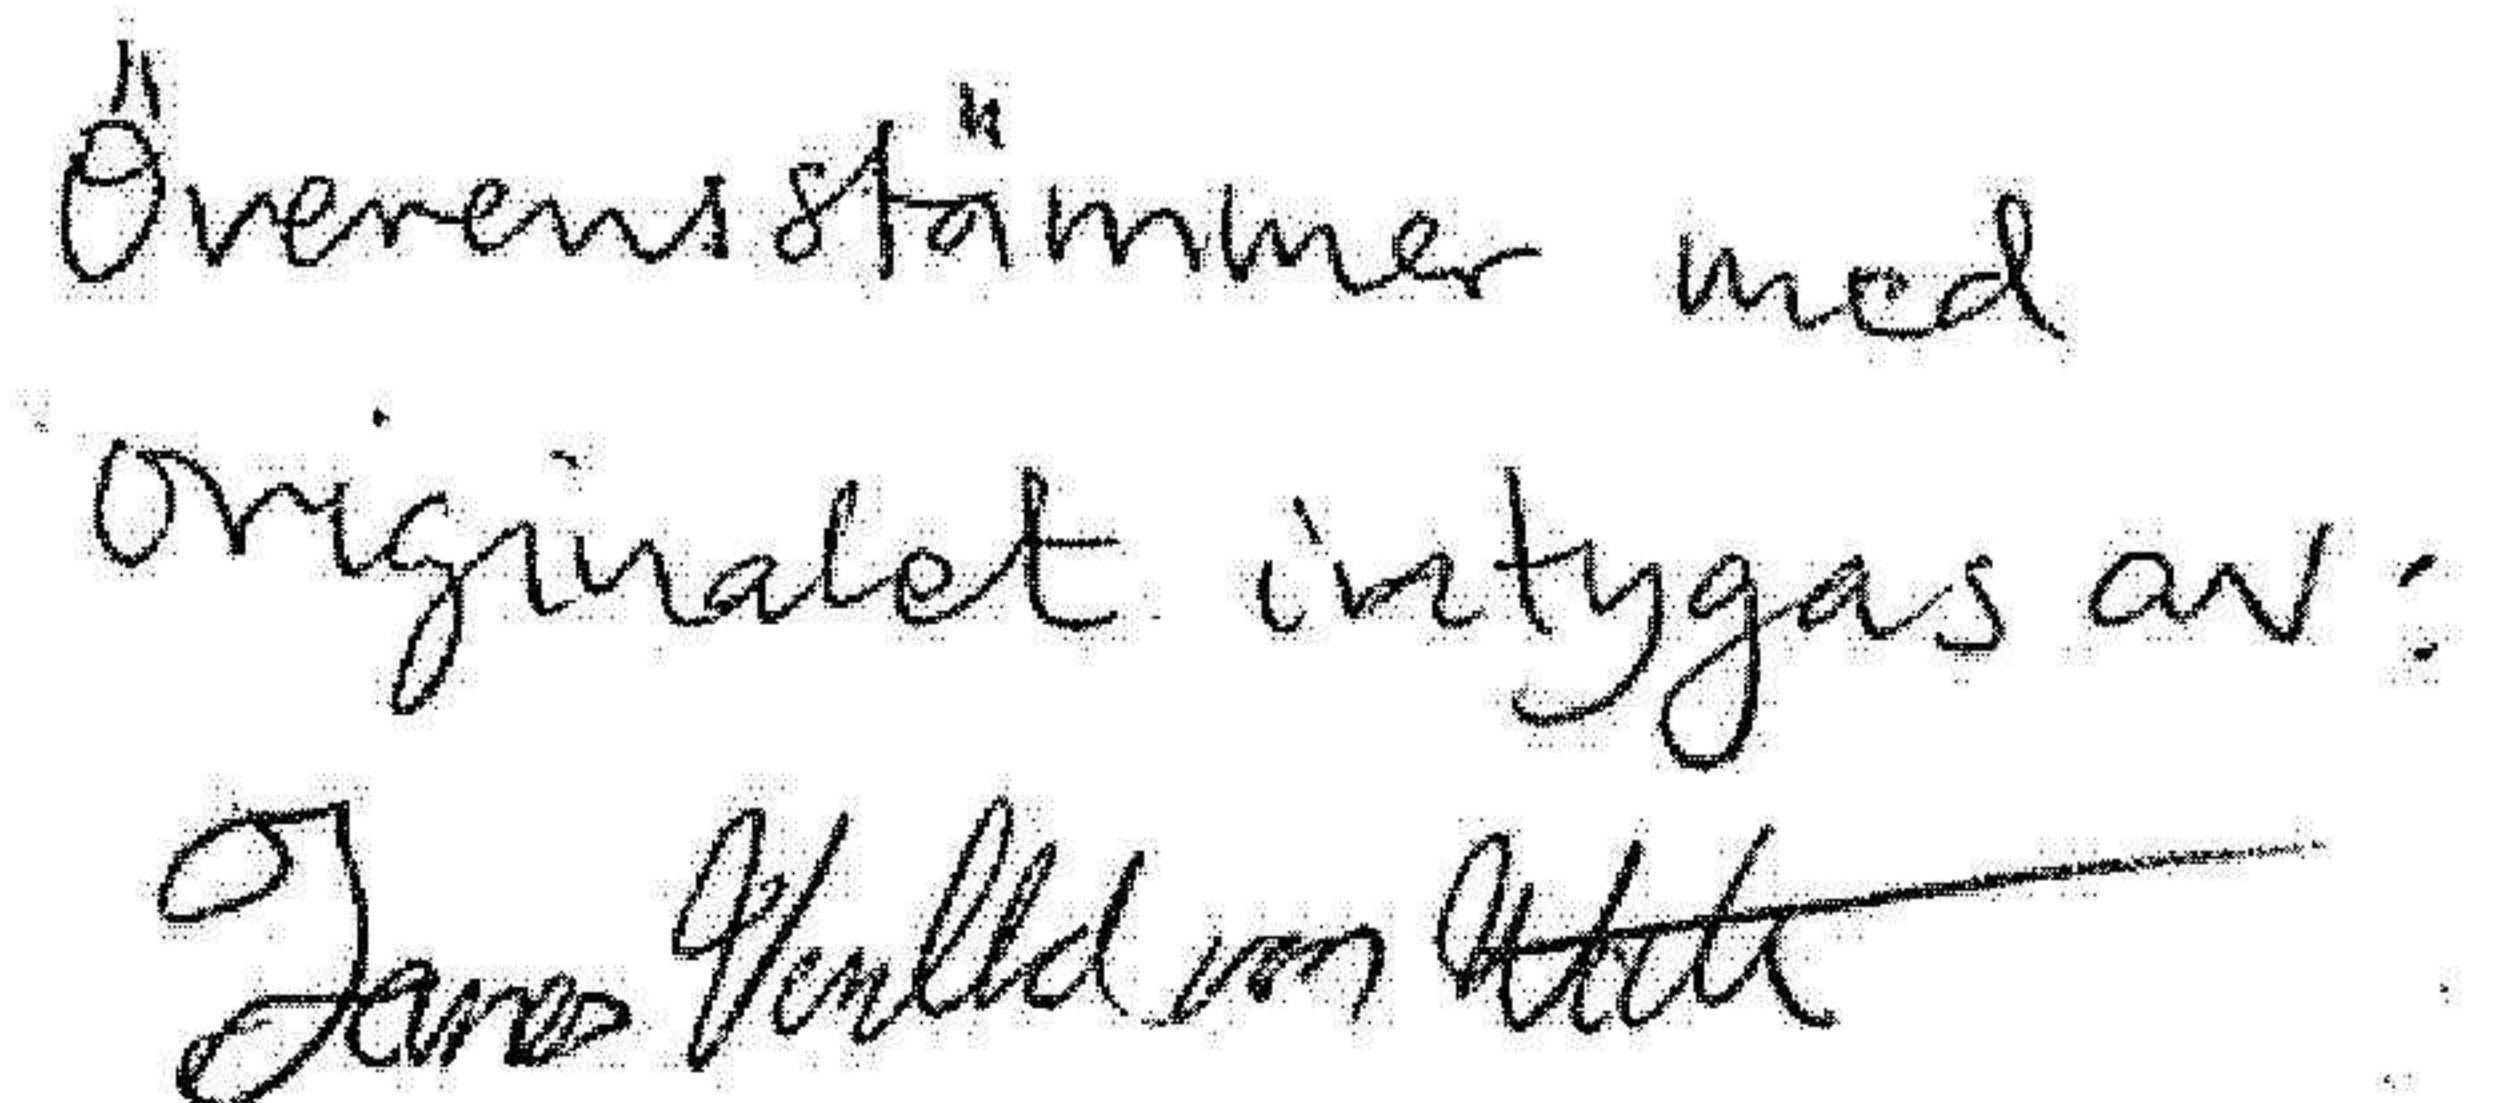 Överensstämmer med
originalet intygas av:
James von